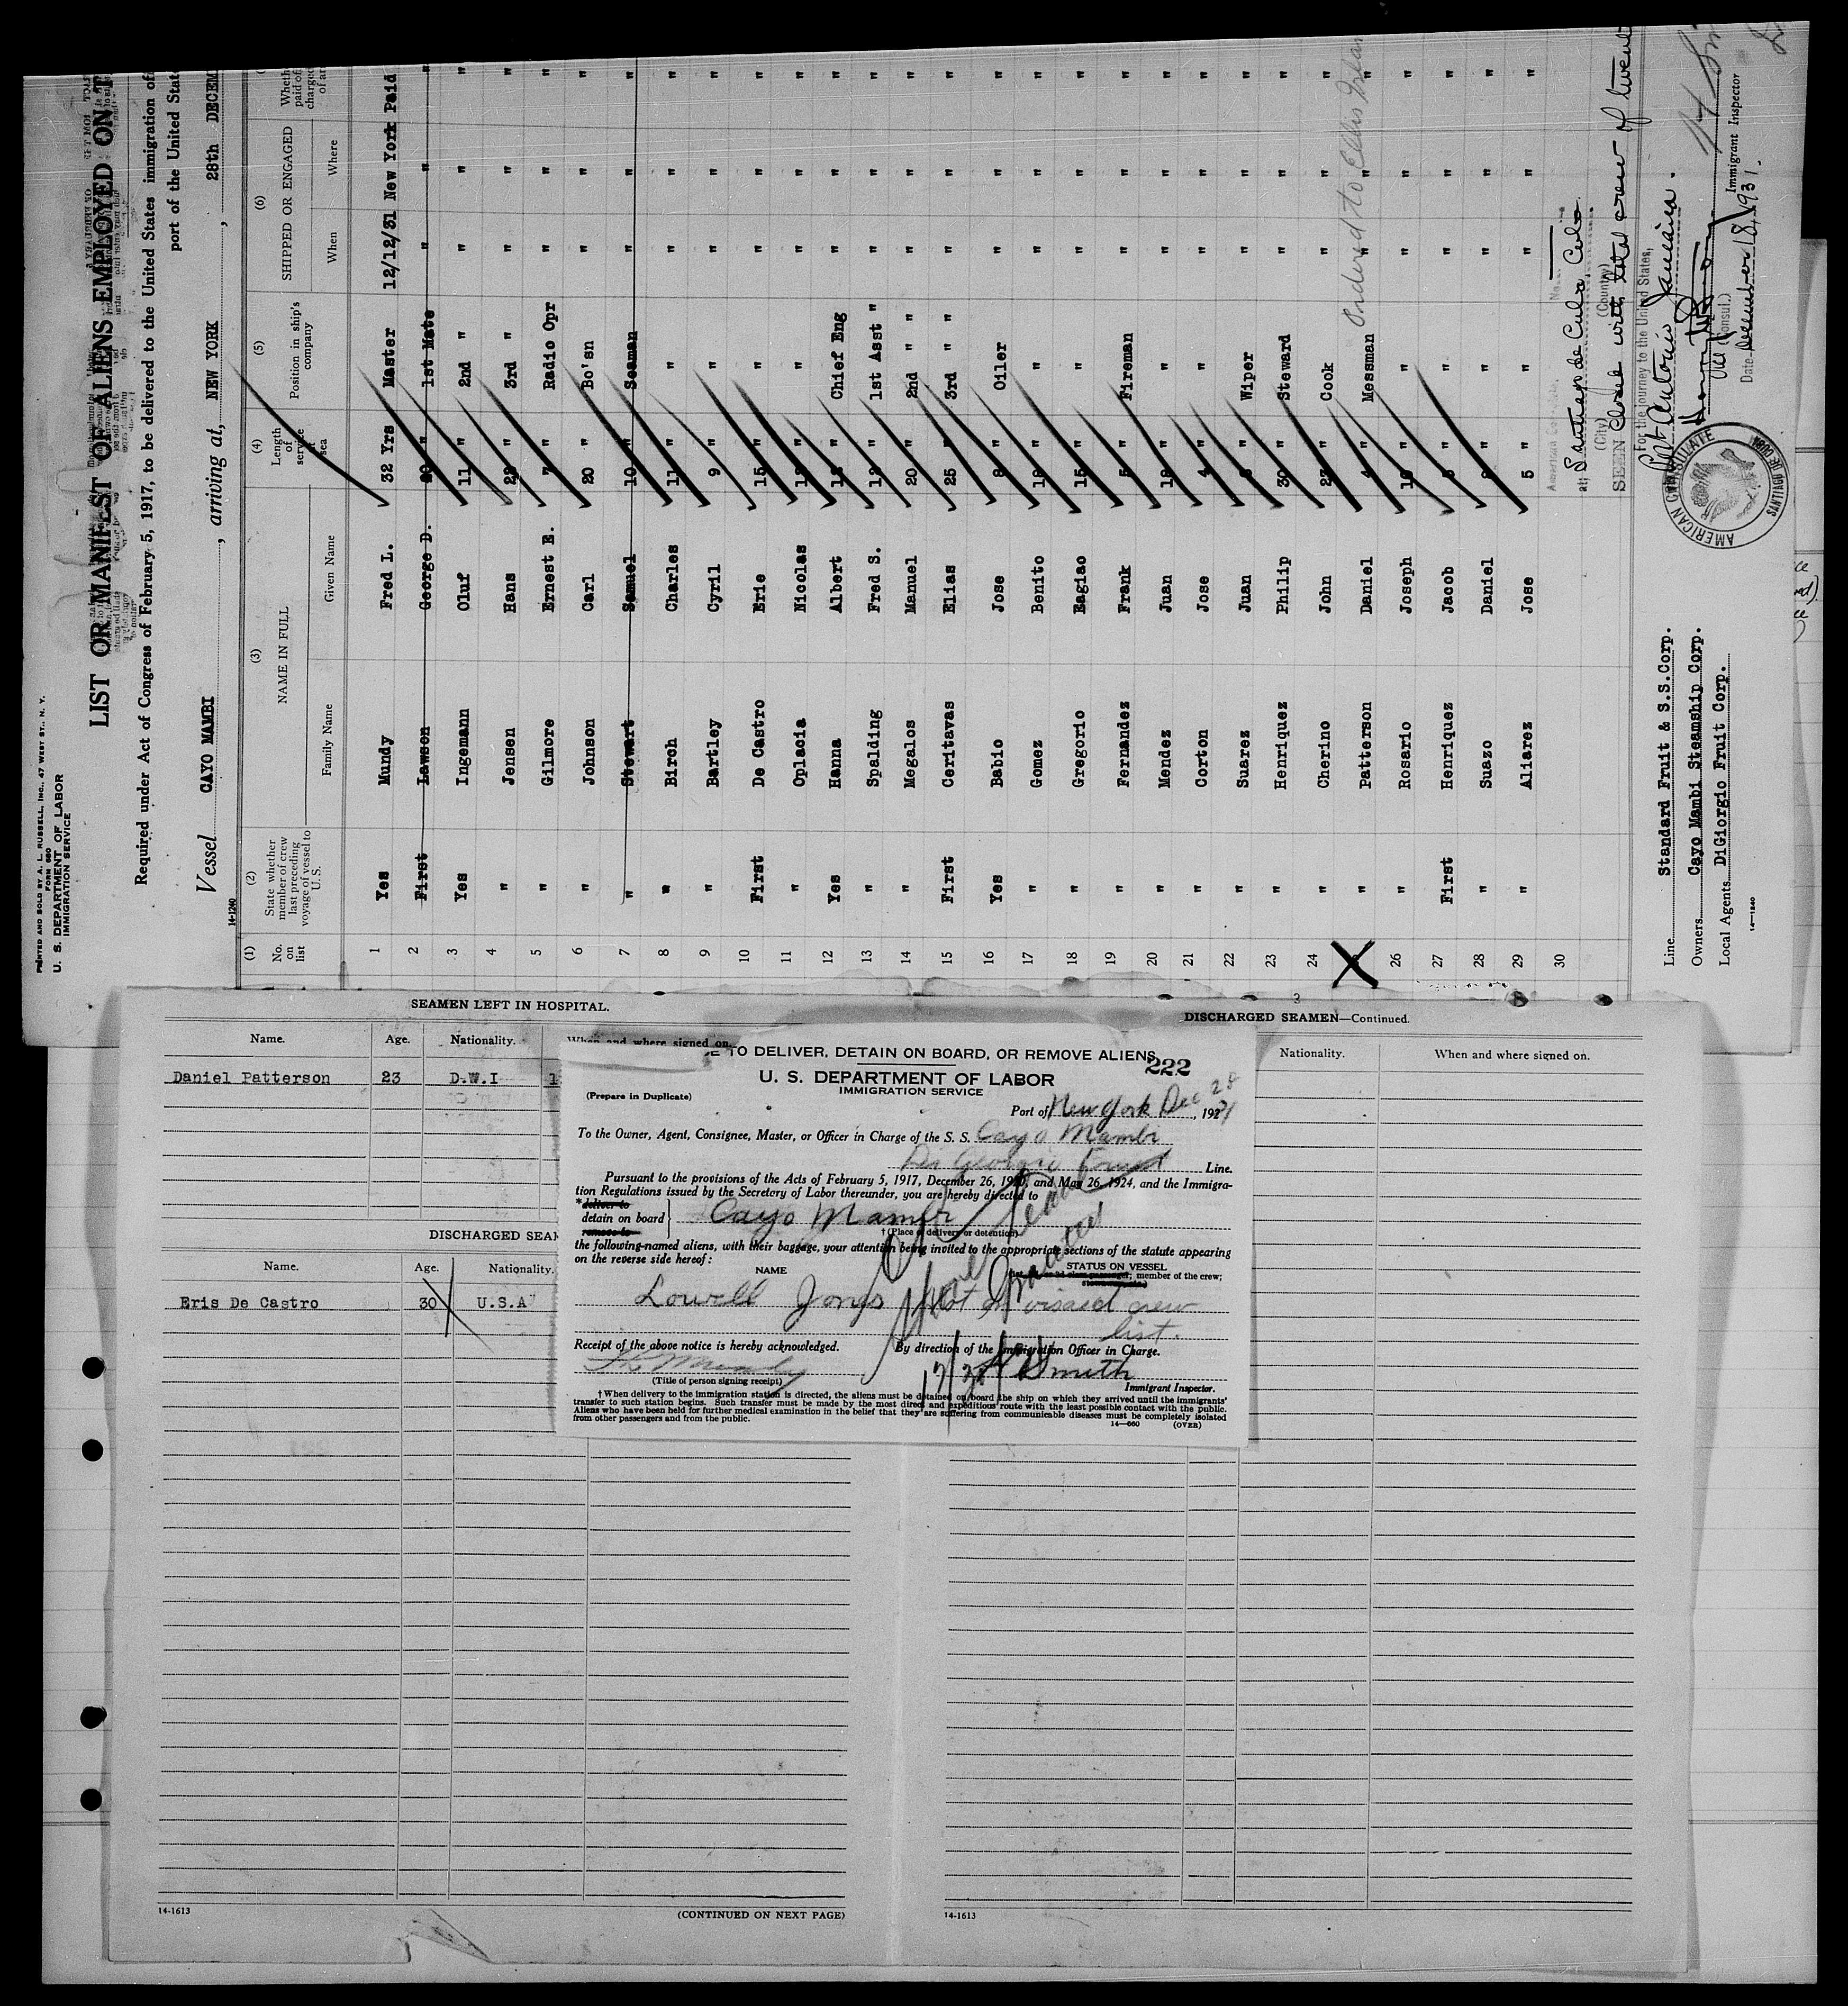 PRINTED AND SOLD BY A. L. RUSSELL, INC., 47 WEST ST., N. Y.
FORM 680
U. S. DEPARTMENT OF LABOR
IMMIGRATION SERVICE
LIST OR MANIFEST OF ALIENS EMPLOYED ON T
Required under Act of Congress of February 5, 1917, to be delivered to the United States immigration of
port of the United Stat
Vessel CAYO MAMBI, arriving at, NEW YORK, 28th DECEM
14-1240
(1) (2) (3) (4) (5) (6)
No. on list
State whether member of crew last preceding voyage of vessel to U.S.
NAME IN FULL
Family Name Given Name
Length of service at sea
Position in ship's company
SHIPPED OR ENGAGED
When Where
Wheth paid of charge of ar
1 Yes Mundy Fred L. 32 Yrs Master 12/12/31 New York Paid
2 First Lawson George D. 20 " 1st Mate " " "
3 Yes Ingemann Oluf 11 " 2nd " " " "
4 " Jensen Hans " 3rd " " " "
5 " Gilmore Ernest E. 7 " Radio Opr " " "
6 " Johnson Carl 20 " Bo'sn " " "
7 " Stewart Samuel 10 " Seaman " " "
8 " Birch Charles 11 " " " " "
9 " Bartley Cyril 9 " " " " "
10 First De Castro Erie 15 " " " " "
11 " Cplacia Nicolas " " " " "
12 Yes Hanna Albert " Chief Eng " " "
13 " Spalding Fred S. " 1st Asst " " " "
14 " Megalos Manuel 20 " 2nd " " " " "
15 First Ceritavas Elias 25 " 3rd " " " " "
16 Yes Babio Jose 8 " Oiler " " "
17 " Gomez Benito " " " " "
18 " Gregorio Eagiao 15 " " " " "
19 " Fernandez Frank 5 " Fireman " " "
20 " Mendez Juan " " " " "
21 " Corton Jose 4 " " " " "
22 " Suarez Juan " Wiper " " "
23 " Henriquez Philip 30 " Steward " " "
24 " Cherino John " Cook " " "
" Patterson Daniel 4 " Messman " " "
26 " Rosario Joseph " " " " "
27 First Henriquez Jacob " " " " "
28 " Suazo Daniel " " " " "
29 " Aliarez Jose 5 " " " " "
30
Ordered to Ellis Islan
at Santiago de Cuba Cuba
(City) (County)
SEEN Closed with total crew of twent
For the journey to the United States,
Port Antonio Jamaica.
Vice (Consul.)
Date December 18, 1931.
Immigrant Inspector
AMERICAN CONSULATE
SANTIAGO DE CUBA
Line Standard Fruit & S.S.Corp.
Owners Cayo Mambi Steamship Corp.
Local Agents DiGiorgio Fruit Corp.
14-1240
SEAMEN LEFT IN HOSPITAL.
Name. Age. Nationality. When and where signed on.
Daniel Patterson 23 D.W.I 1
DISCHARGED SEAM
Name. Age. Nationality.
Eris De Castro 30 U.S.A
14-1613
(CONTINUED ON NEXT PAGE)
DISCHARGED SEAMEN—Continued.
Nationality. When and where signed on.
14-1613
E TO DELIVER, DETAIN ON BOARD, OR REMOVE ALIENS
222
U. S. DEPARTMENT OF LABOR
IMMIGRATION SERVICE
(Prepare in Duplicate)
Port of New York Dec 28, 1931
To the Owner, Agent, Consignee, Master, or Officer in Charge of the S. S. Cayo Mambi
Di Georgio Fruit Line.
Pursuant to the provisions of the Acts of February 5, 1917, December 26, 1920, and May 26, 1924, and the Immigra-
tion Regulations issued by the Secretary of Labor thereunder, you are hereby directed to
*deliver to
detain on board Cayo Mambi
remove to
†(Place of delivery or detention)
the following-named aliens, with their baggage, your attention being invited to the appropriate sections of the statute appearing
on the reverse side hereof:
NAME STATUS ON VESSEL
member of the crew;
Lowell Jones Not on visaed crew
list.
Receipt of the above notice is hereby acknowledged. By direction of the Immigration Officer in Charge.
Smith
(Title of person signing receipt)
Immigrant Inspector.
†When delivery to the immigration station is directed, the aliens must be detained on board the ship on which they arrived until the immigrants'
transfer to such station begins. Such transfer must be made by the most direct and expeditious route with the least possible contact with the public.
Aliens who have been held for further medical examination in the belief that they are suffering from communicable diseases must be completely isolated
from other passengers and from the public.
14—660 (OVER)